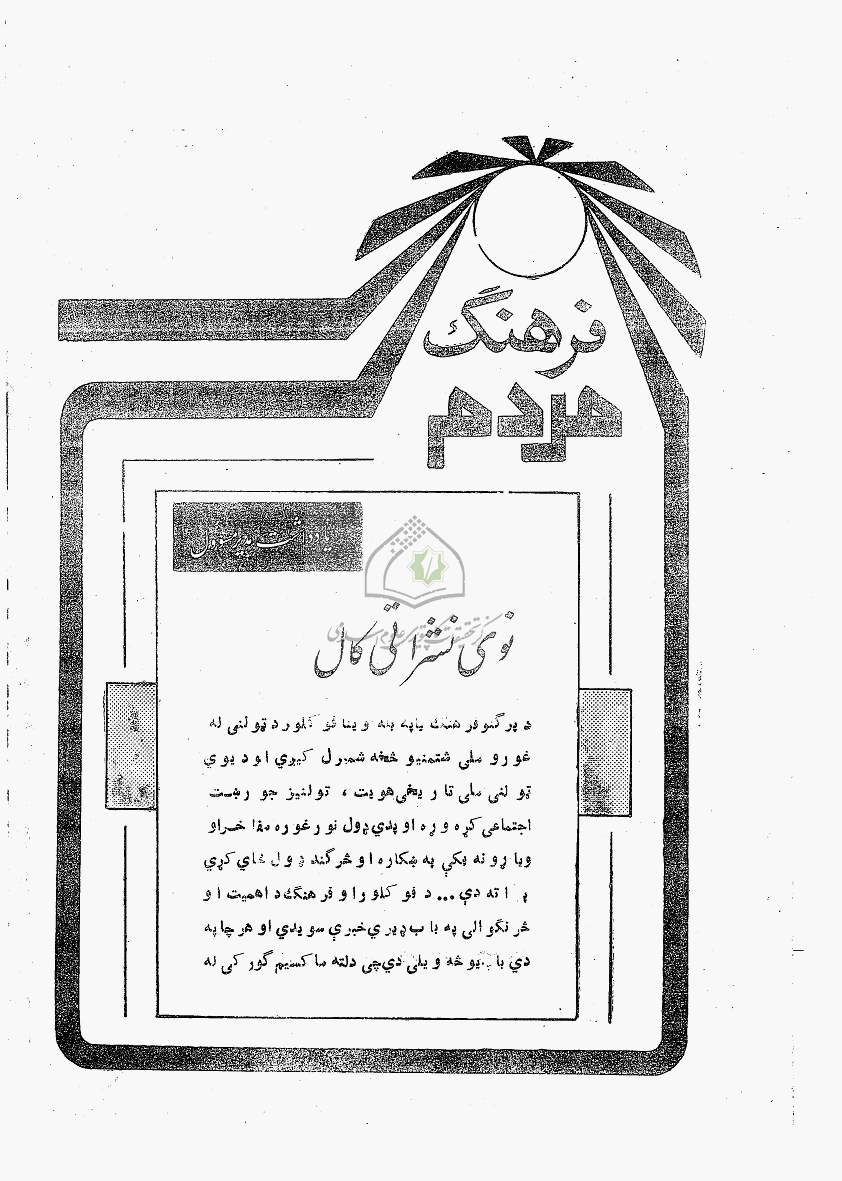 فرهنگ
مردم
یادداشت مدیر مسوول
مرکز تحقیقات کامپیوتری علوم اسلامی
نوی نشراتی کال
د پرگنو فرهنگ یاپه بله وینا فوکلور د ټولنی له
غورو ملی شتمنیو څخه شمېرل کیږي او د یوې
ټولنی ملی تاریخی هویت ، تولنیز جوړښت
اجتماعی کړه وړه او پدې ډول نور غوره مفاخراو
ویاړونه پکې په ښکاره او څرگند ډول ځای کړې
پاته دي ... د فوکلور او فرهنگ د اهمیت او
څرنگوالی په باب ډیرې خبرې سویدي او هرچا په
دې باب یو څه ویلی دي چی دلته ماکسیم گورکی له